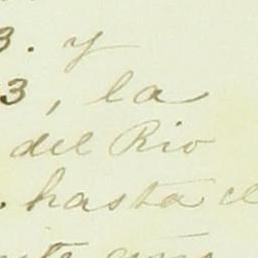 3. y
3, la
del Rio
. hasta el